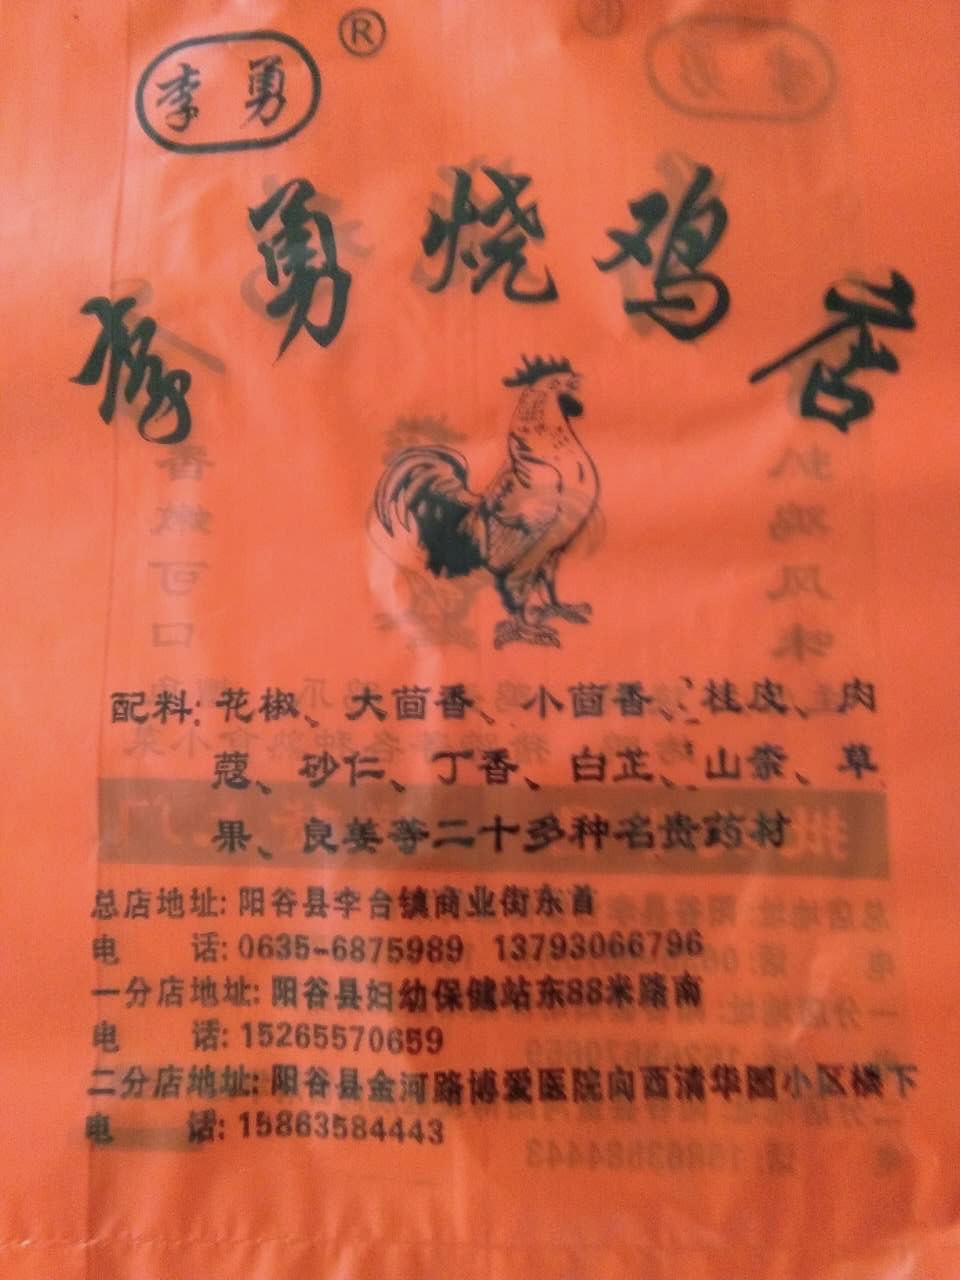 李勇
®
李勇烧鸡店
配料: 花椒、大茴香、小茴香、桂皮、肉
蔻、砂仁、丁香、白芷、山柰、草
果、良姜等二十多种名贵药材
总店地址: 阳谷县李台镇商业街东首
电 话: 0635-6875989 13793066796
一分店地址: 阳谷县妇幼保健站东88米路南
电 话: 15265570659
二分店地址: 阳谷县金河路博爱医院向西清华园小区楼下
电 话: 15863584443
扒鸡风味
香嫩可口